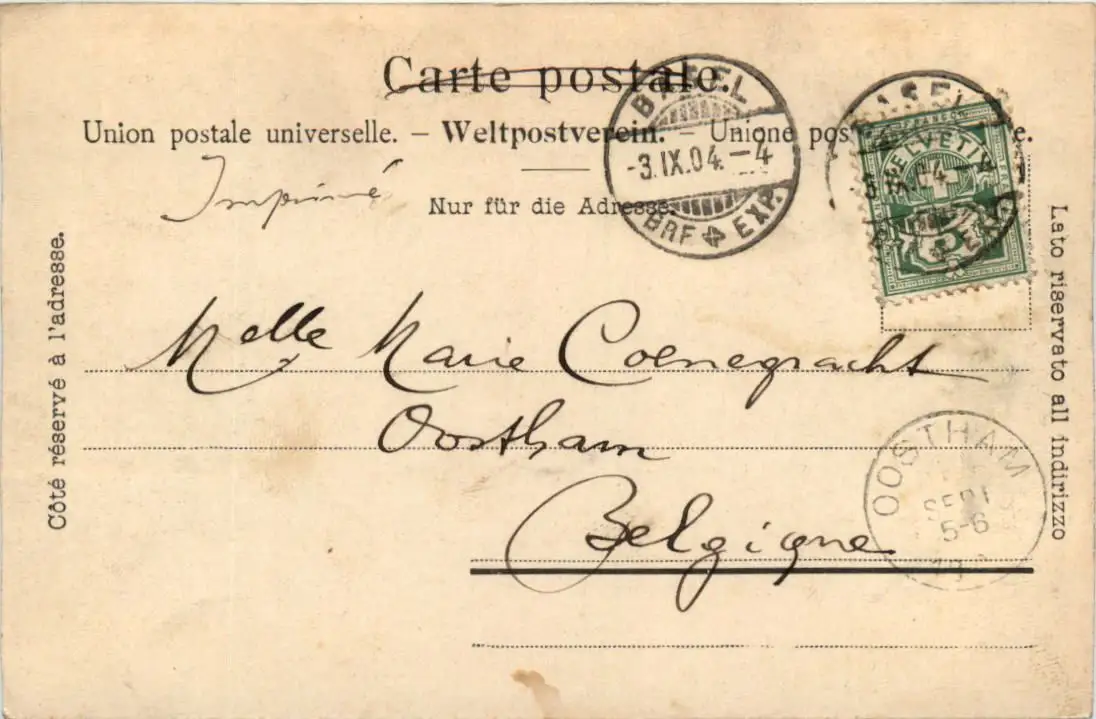 Carte postale.
Union postale universelle. – Weltpostverein. – Unione pos e.
Nur für die Adresse.
Imprimé
BASEL
-3.IX.04.–4
BRF. EXP.
BASEL
FRANCO
HELVETIA
IX.04.–4
5
EXP.
Côté réservé à l'adresse.
Lato riservato all indirizzo
Melle Marie Coenegracht
Oostham
Belgique
OOSTHAM
SEPT
5-6